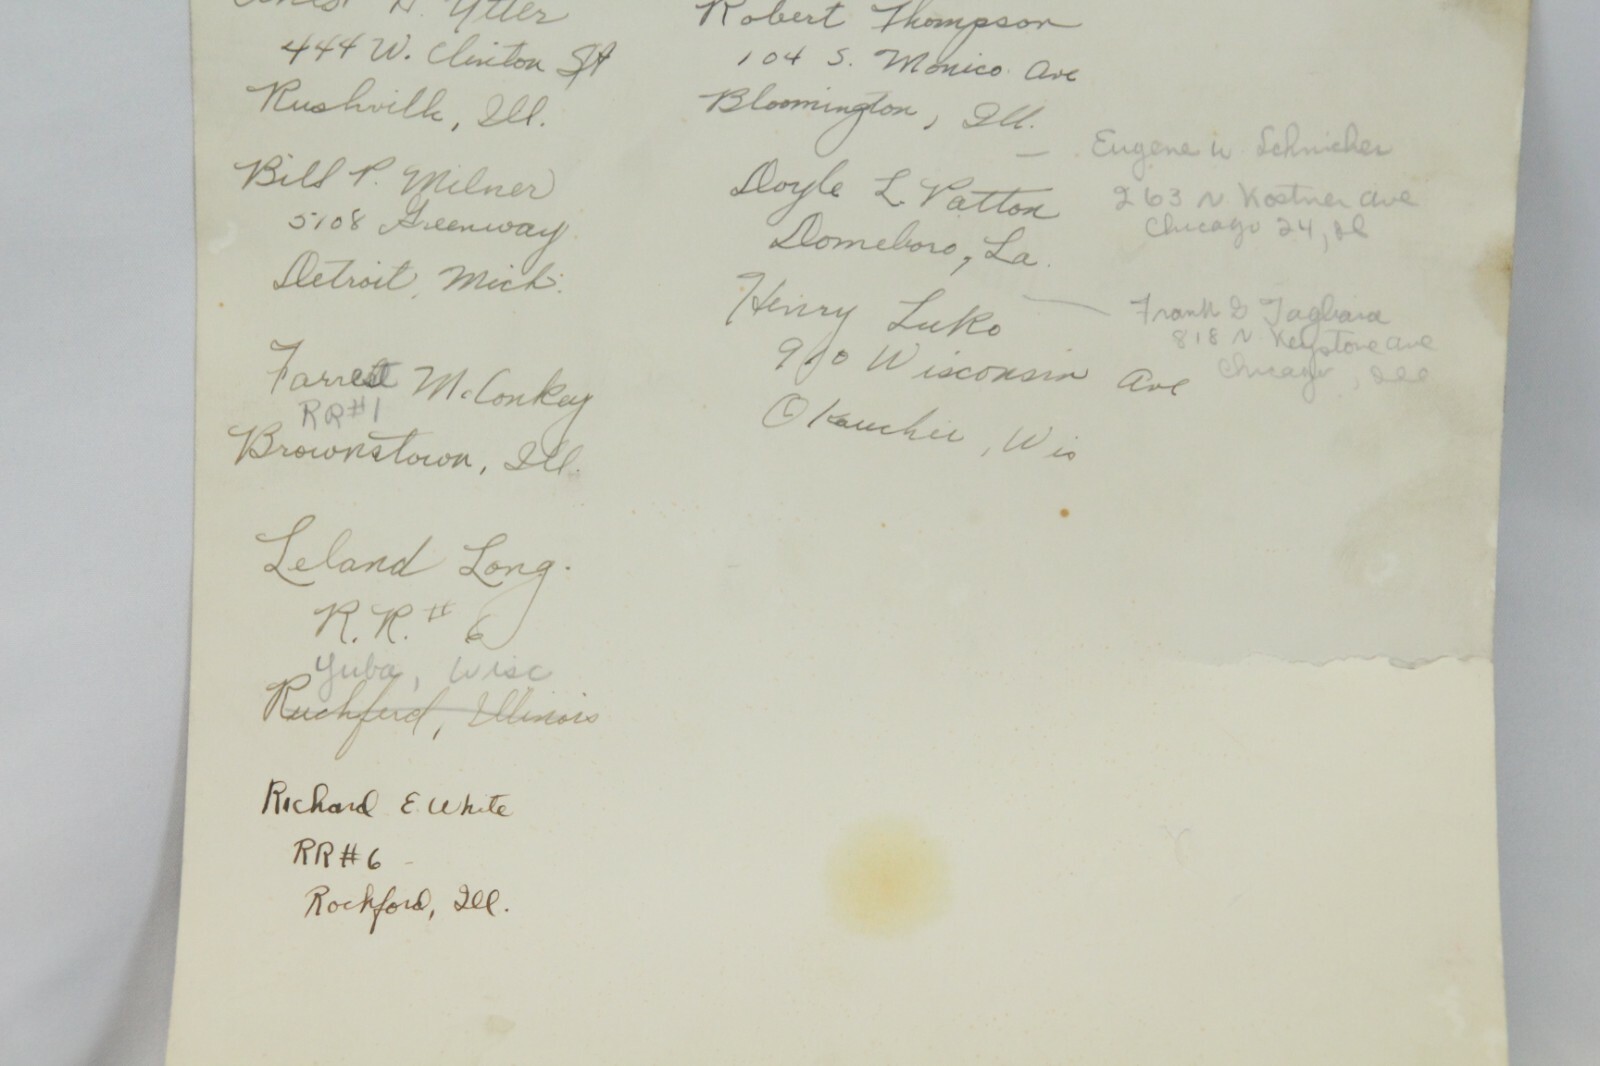 H. Ytter
444 W. Clinton St
Rushville, Ill.
Bill P. Milner
5108 Greenway
Detroit, Mich.
Farrell McConkey
RR#1
Brownstown, Ill.
Leland Long.
R.R.# 6
Yuba, Wisc
Ruchford, Illinois
Richard E White
RR#6
Rockford, Ill.
Robert Thompson
104 S. Monico Ave
Bloomington, Ill.
Doyle L. Patton
Domeboro, La.
Henry Luko
910 Wisconsin Ave
Okauchee, Wis
Eugene W
263 N. Kostner Ave
Chicago 24, Ill
Frank G
818 N. Keystone Ave
Chicago, Ill